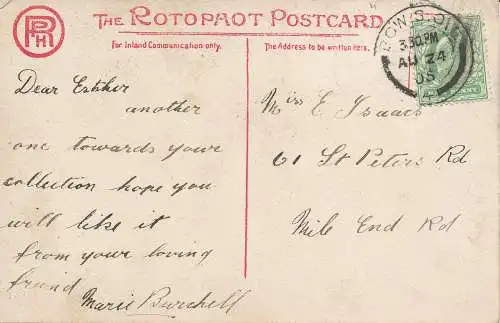 THE ROTOPHOT POSTCARD
For Inland Communication only.
The Address to be written here.
Dear Esther
another
one towards your
collection hope you
will like it
from your loving
friend
Marie Burchell
Miss E Isaacs
61 St Peters Rd
Mile End Rd
3.30 PM
AU 24
05